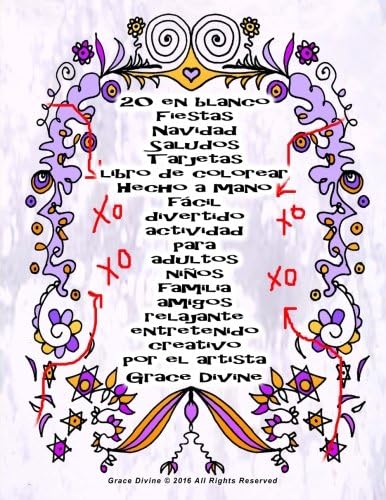 20 en blanco
Fiestas
Navidad
Saludos
Tarjetas
libro de colorear
Hecho a Mano
Fácil
divertido
XO XO
actividad
para
adultos
XO XO
niños
familia
amigos
relajante
entretenido
creativo
por el artista
Grace Divine
Grace Divine © 2016 All Rights Reserved